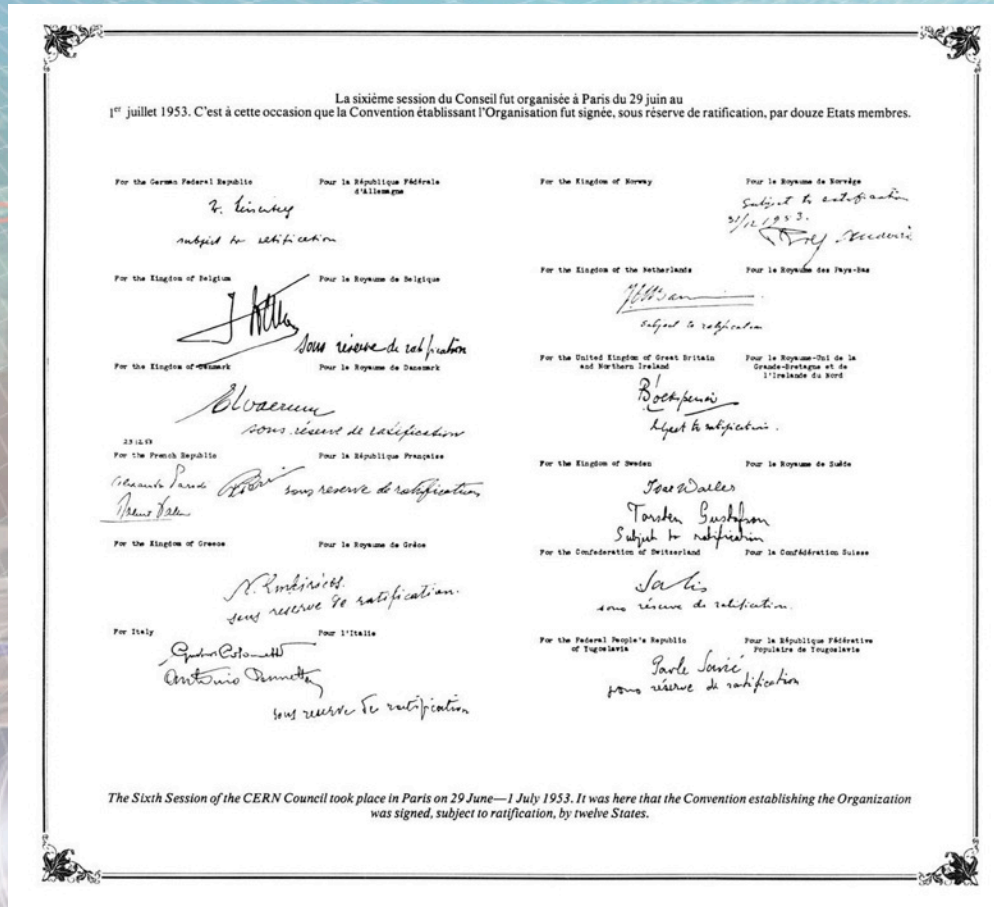 La sixième session du Conseil fut organisée à Paris du 29 juin au
1er juillet 1953. C'est à cette occasion que la Convention établissant l'Organisation fut signée, sous réserve de ratification, par douze Etats membres.
For the German Federal Republic
Pour la République Fédérale
d'Allemagne
subject to ratification
For the Kingdom of Belgium
Pour le Royaume de Belgique
sous réserve de ratification
For the Kingdom of Denmark
Pour le Royaume de Danemark
sous réserve de ratification
23.12.53
For the French Republic
Pour la République Française
sous reserve de ratification
For the Kingdom of Greece
Pour le Royaume de Grèce
sous reserve de ratification.
For Italy
Pour l'Italie
Antonio Pennetta
sous reserve de ratification
For the Kingdom of Norway
Pour le Royaume de Norvège
Subject to ratification
31/12 1953.
For the Kingdom of the Netherlands
Pour le Royaume des Pays-Bas
subject to ratification
For the United Kingdom of Great Britain
and Northern Ireland
Pour le Royaume-Uni de la
Grande-Bretagne et de
l'Irelande du Nord
subject to ratification.
For the Kingdom of Sweden
Pour le Royaume de Suède
Ivar Waller
Torsten Gustafson
Subject to ratification
For the Confederation of Switzerland
Pour la Confédération Suisse
Salis
sous réserve de ratification.
For the Federal People's Republic
of Yugoslavia
Pour la République Fédérative
Populaire de Yougoslavie
Pavle Savić
sous réserve de ratification
The Sixth Session of the CERN Council took place in Paris on 29 June—1 July 1953. It was here that the Convention establishing the Organization
was signed, subject to ratification, by twelve States.